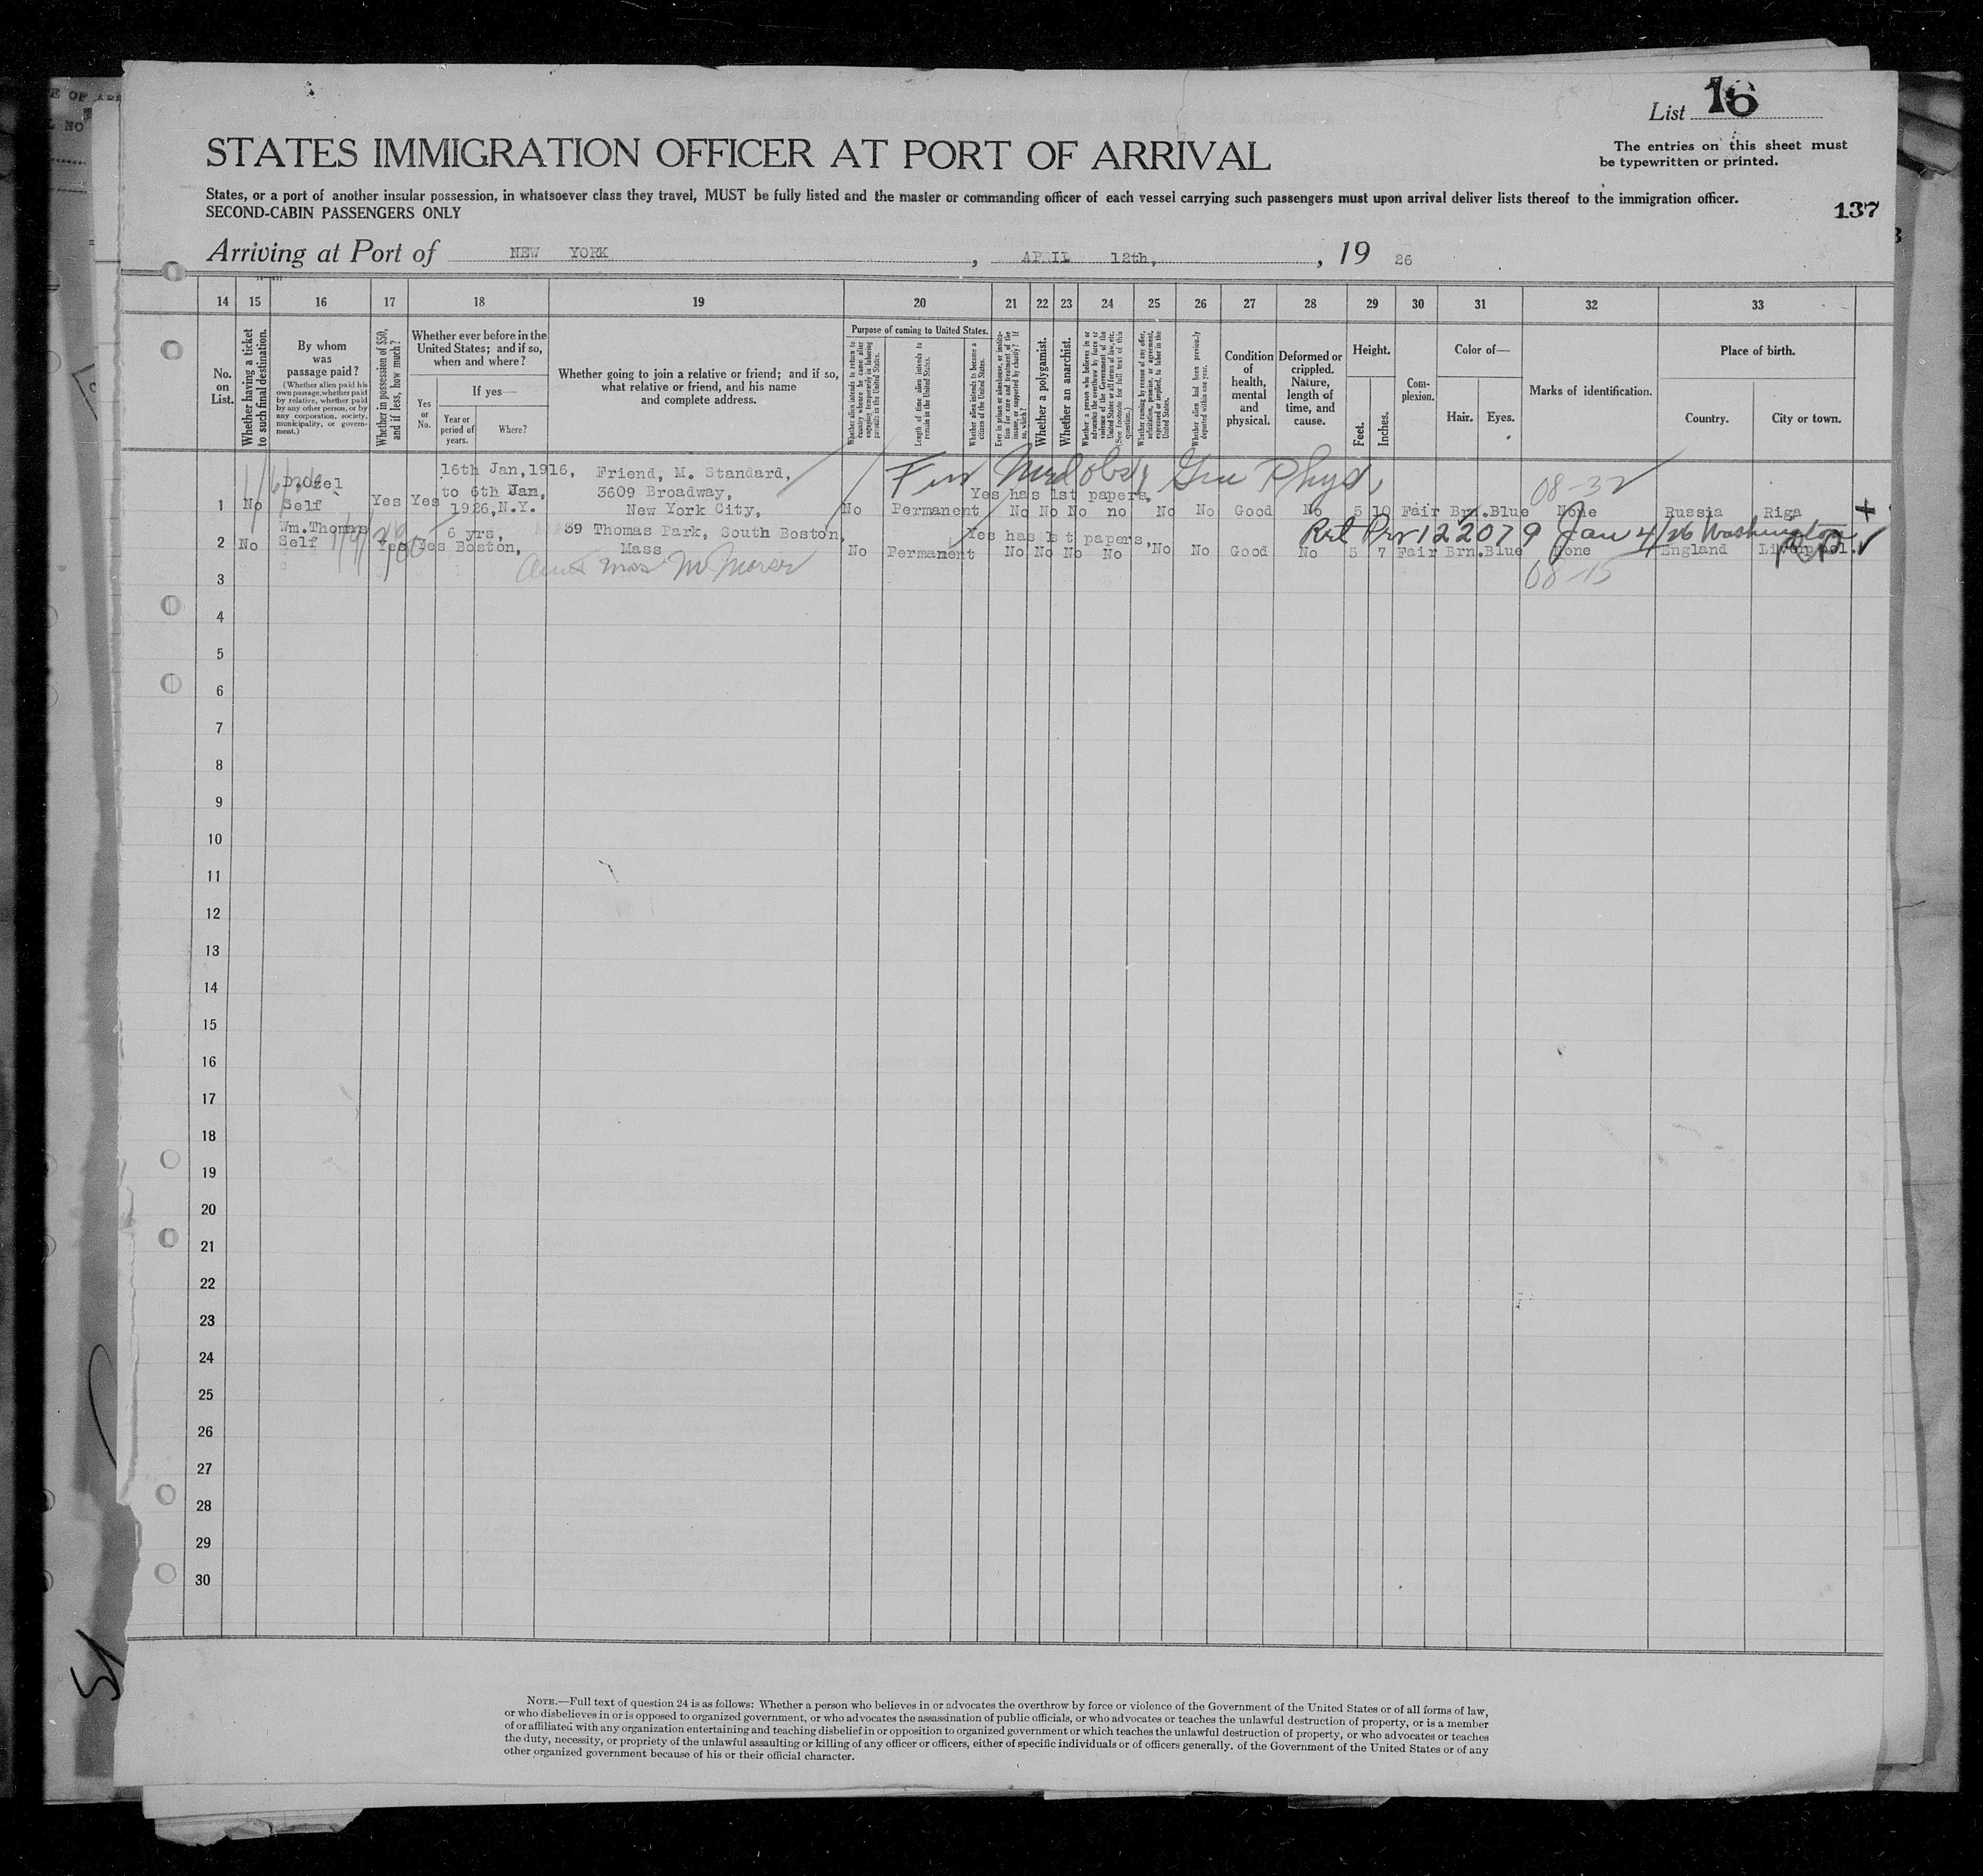 List 16
STATES IMMIGRATION OFFICER AT PORT OF ARRIVAL
The entries on this sheet must
be typewritten or printed.
States, or a port of another insular possession, in whatsoever class they travel, MUST be fully listed and the master or commanding officer of each vessel carrying such passengers must upon arrival deliver lists thereof to the immigration officer.
SECOND-CABIN PASSENGERS ONLY
137
Arriving at Port of NEW YORK, APRIL 12th, , 19 26
14 15 16 17 18 19 20 21 22 23 24 25 26 27 28 29 30 31 32 33
No. on List.
Whether having a ticket to such final destination.
By whom was passage paid?
(Whether alien paid his own passage, whether paid by relative, whether paid by any other person, or by any corporation, society, municipality, or government.)
Whether in possession of $50, and if less, how much?
Whether ever before in the United States; and if so, when and where?
Yes or No.
If yes—
Year or period of years.
Where?
Whether going to join a relative or friend; and if so, what relative or friend, and his name and complete address.
Purpose of coming to United States.
Whether alien intends to return to country whence he came after engaging temporarily in laboring pursuits in the United States.
Length of time alien intends to remain in the United States.
Whether alien intends to become a citizen of the United States.
Ever in prison or almshouse, or institution for care and treatment of the insane, or supported by charity? If so, which?
Whether a polygamist.
Whether an anarchist.
Whether a person who believes in or advocates the overthrow by force or violence of the Government of the United States or all forms of law, etc. (See footnote for full text of this question.)
Whether coming by reason of any offer, solicitation, promise, or agreement, expressed or implied, to labor in the United States.
Whether alien had been previously deported within one year.
Condition of health, mental and physical.
Deformed or crippled. Nature, length of time, and cause.
Height.
Feet. Inches.
Complexion.
Color of—
Hair. Eyes.
Marks of identification.
Place of birth.
Country. City or town.
16th Jan, 1916, Friend, M. Standard,
to 6th Jan, 3609 Broadway, Yes has 1st papers, 08-32
1 No Self Yes Yes 1926, N.Y. New York City, No Permanent No No No no No No Good No 5 10 Fair Brn. Blue None Russia Riga +
Wm. Thomas 6 yrs, 39 Thomas Park, South Boston, Yes has 1st papers, 122079 Jan 4/26 Washington
2 No Self Yes Yes Boston, Mass No Permanent No No No No No No Good No 5 7 Fair Brn. Blue None England Liverpool.
Aunt 08-15
3
4
5
6
7
8
9
10
11
12
13
14
15
16
17
18
19
20
21
22
23
24
25
26
27
28
29
30
NOTE.—Full text of question 24 is as follows: Whether a person who believes in or advocates the overthrow by force or violence of the Government of the United States or of all forms of law,
or who disbelieves in or is opposed to organized government, or who advocates the assassination of public officials, or who advocates or teaches the unlawful destruction of property, or is a member
of or affiliated with any organization entertaining and teaching disbelief in or opposition to organized government or which teaches the unlawful destruction of property, or who advocates or teaches
the duty, necessity, or propriety of the unlawful assaulting or killing of any officer or officers, either of specific individuals or of officers generally, of the Government of the United States or of any
other organized government because of his or their official character.